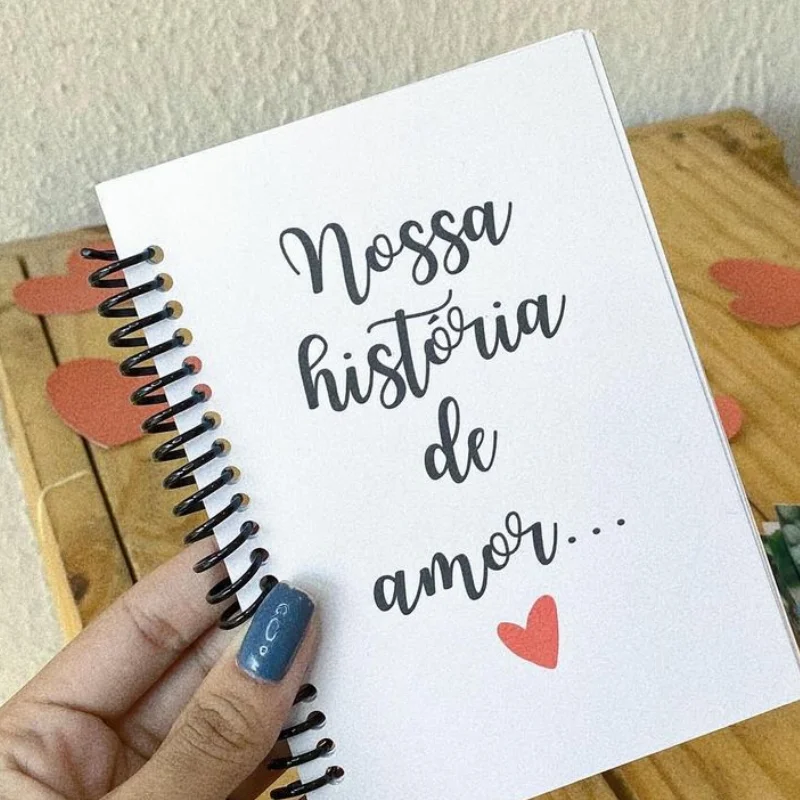 Nossa
história
de
amor...